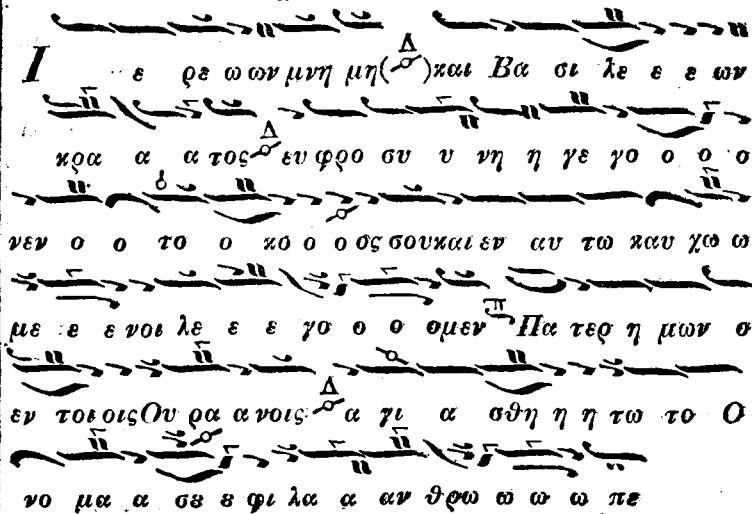 Ι ε ρε ω ων μνη μη(Δ)και Βα σι λε ε ε ων
κρα α α τος Δ ευ φρο συ υ νη η γε γο ο ο ο
νεν ο ο το ο κο ο ο ος σου και εν αυ τω καυ χω ω
με ε ε νοι λε ε ε γο ο ο ομεν π Πα τερ η μων ο
εν τοι οις Ου ρα α νοις Δ α γι α σθη η η τω το Ο
νο μα α σε ε φι λα α αν θρω ω ω ω πε